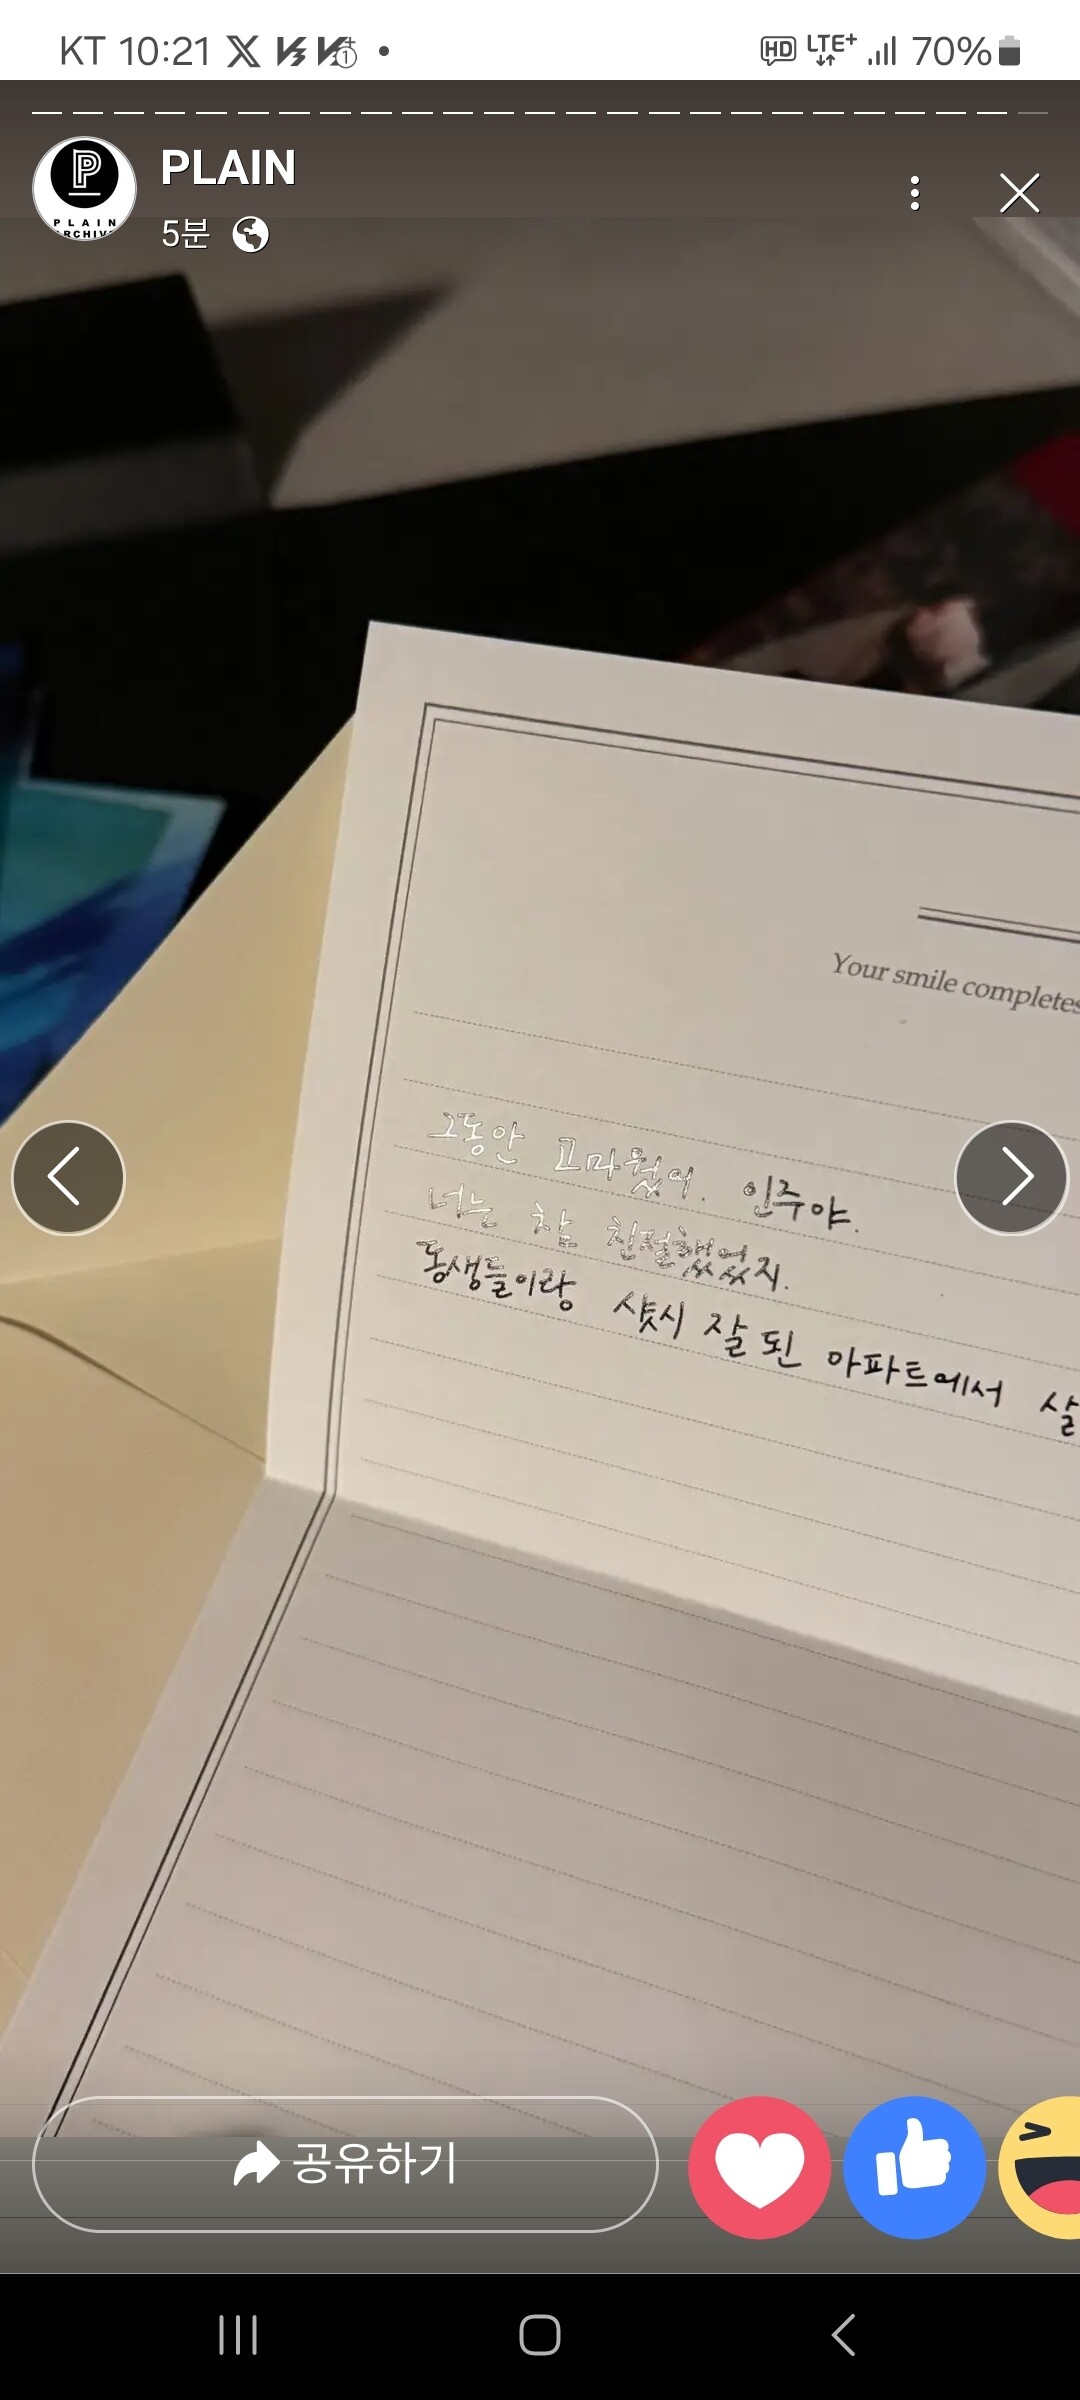 KT 10:21
HD LTE+ 70%
PLAIN
5분
PLAIN
Your smile completes
그동안 고마웠어. 인주야.
너는 참 친절했었지.
동생들이랑 샷시 잘 된 아파트에서 살
공유하기